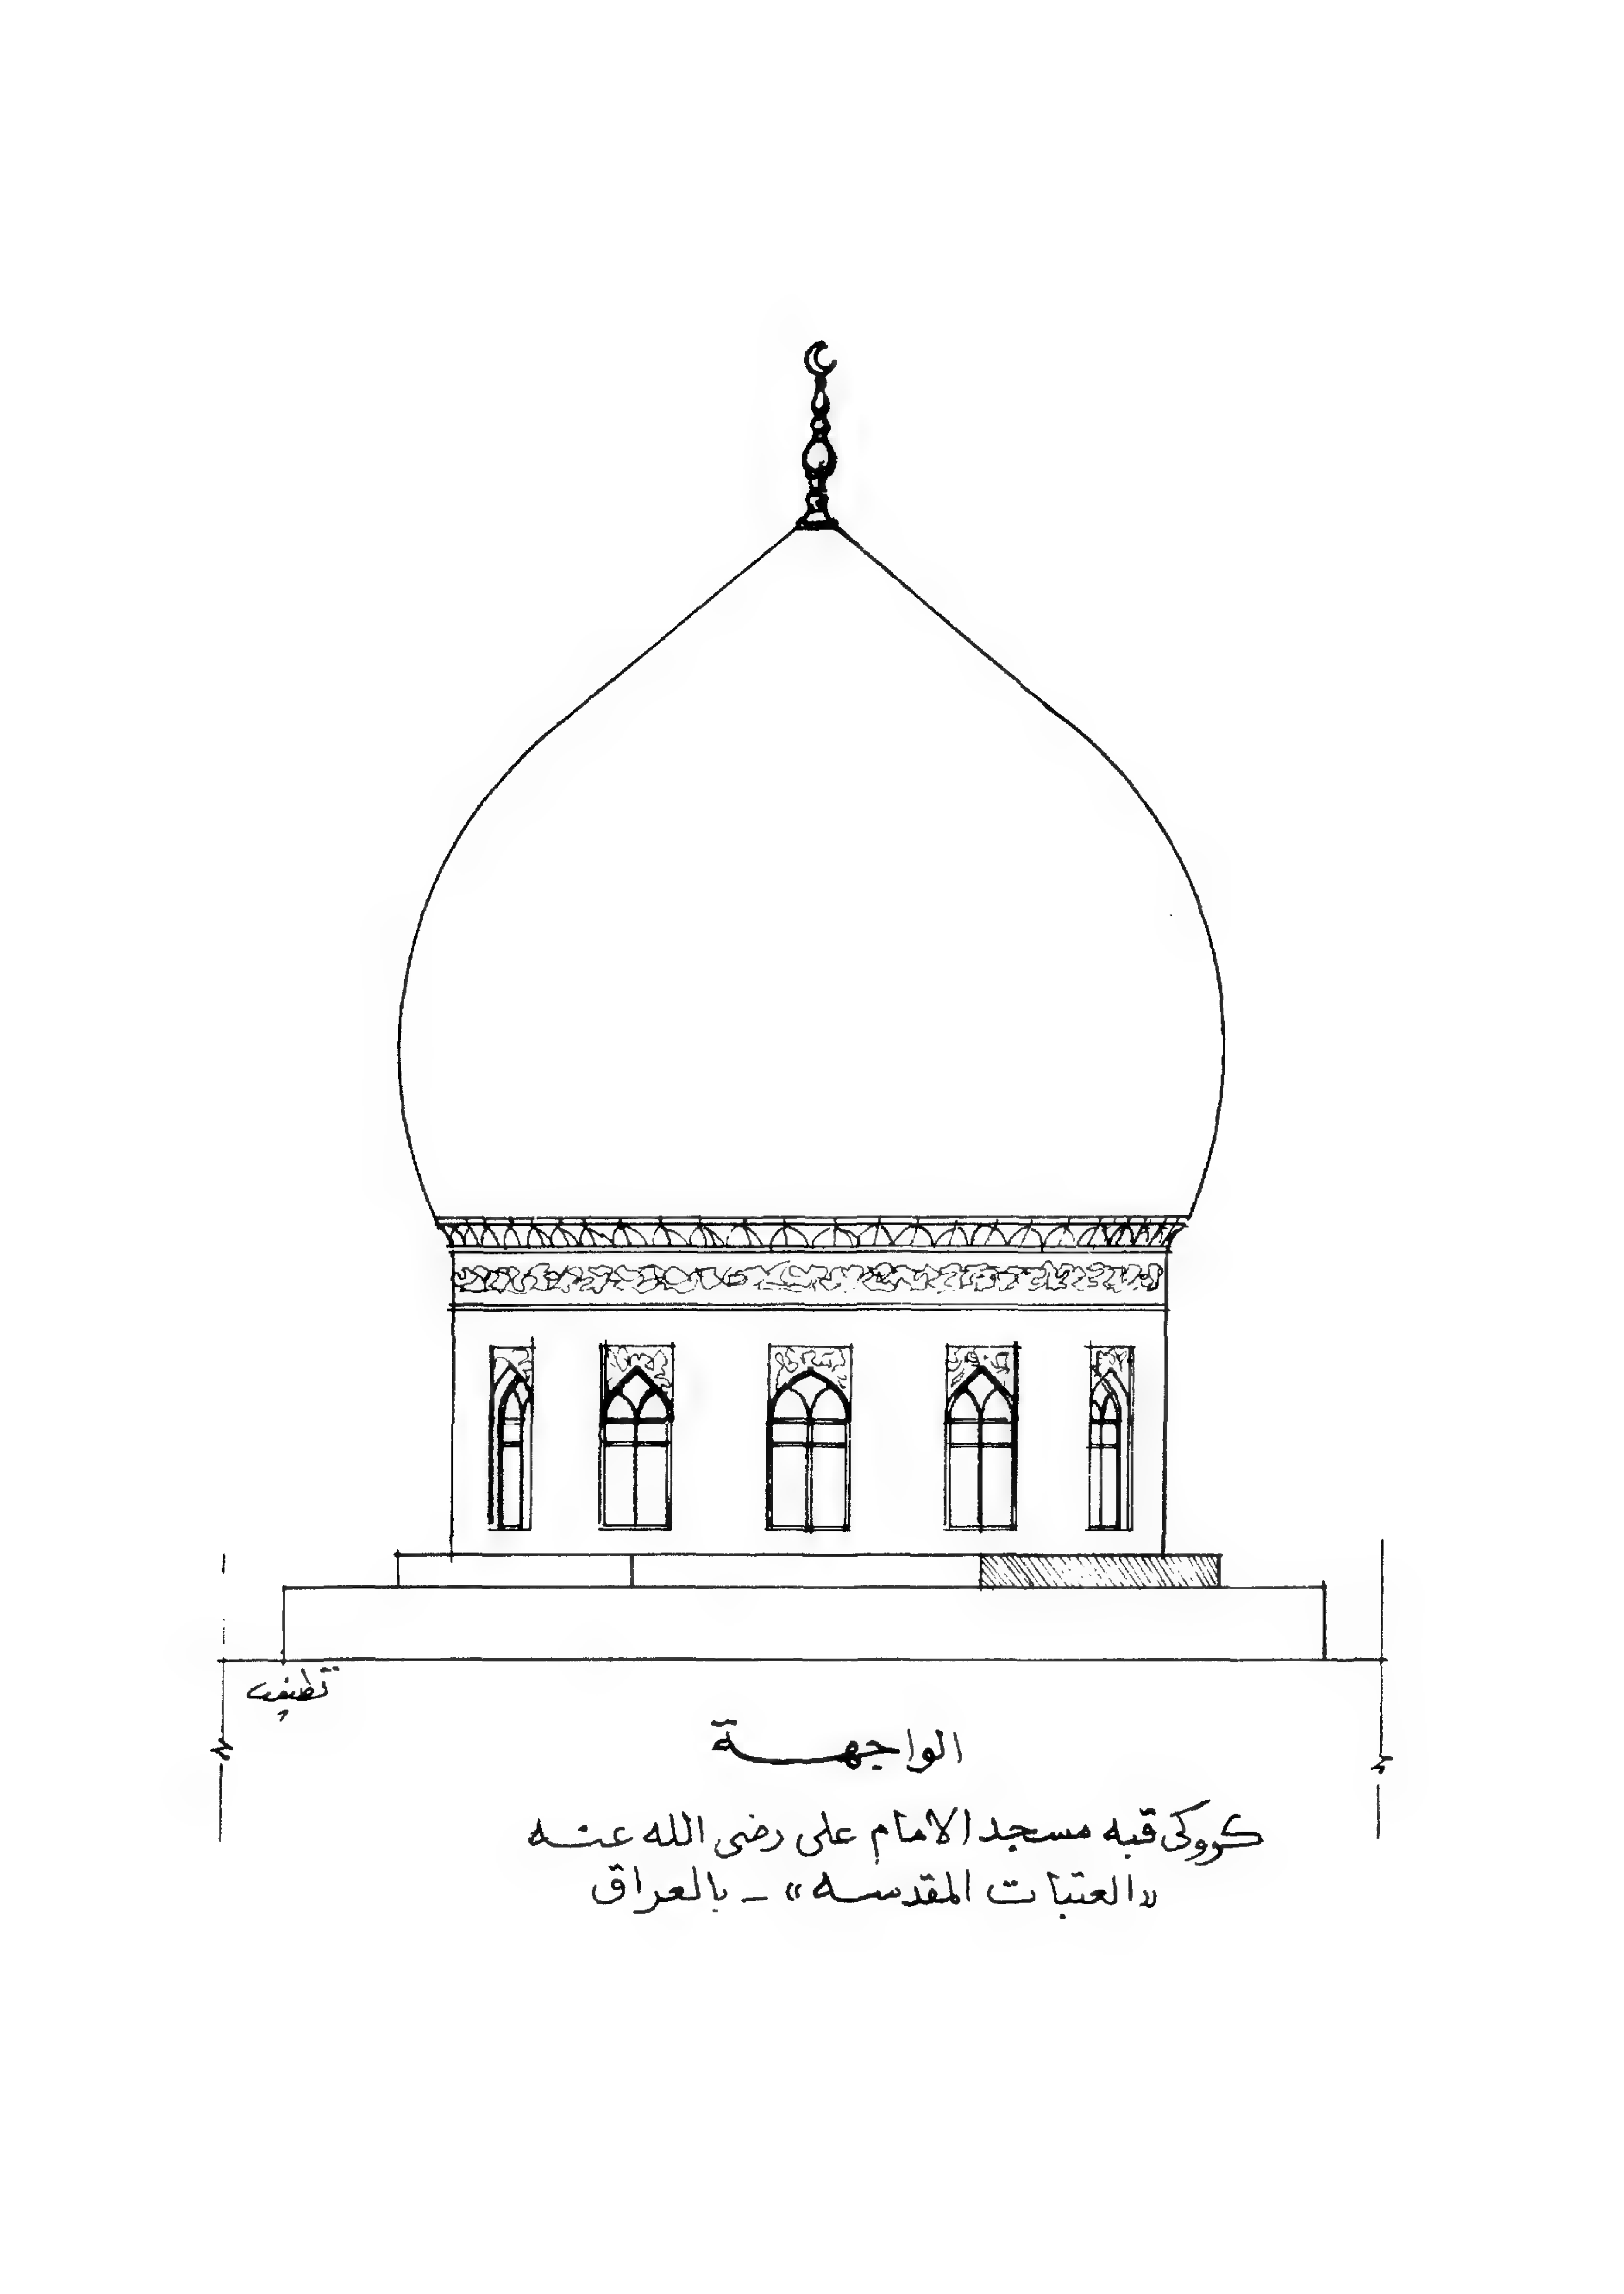 الواجهة
كروكى قبه مسجد الامام على رضى الله عنه
«العتبات المقدسه» - بالعراق